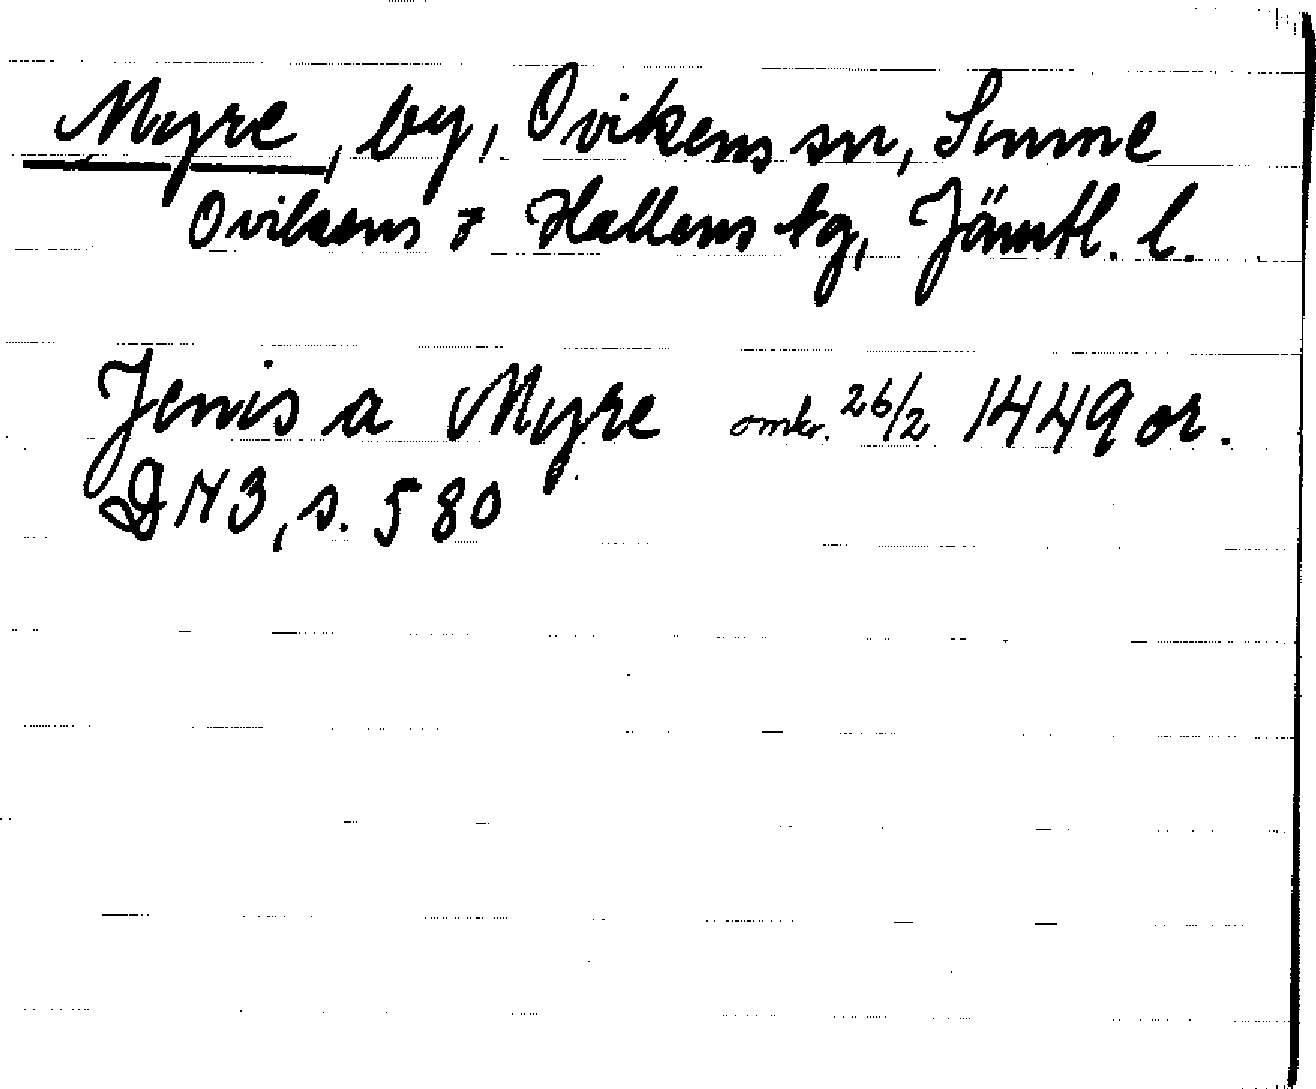 Myre, by, Ovikens sn, Sunne
Ovikens o Hallens tg, Jämtl. l.
Jenis a Myre omkr. 26/2 1449 or.
DN 3, s. 580